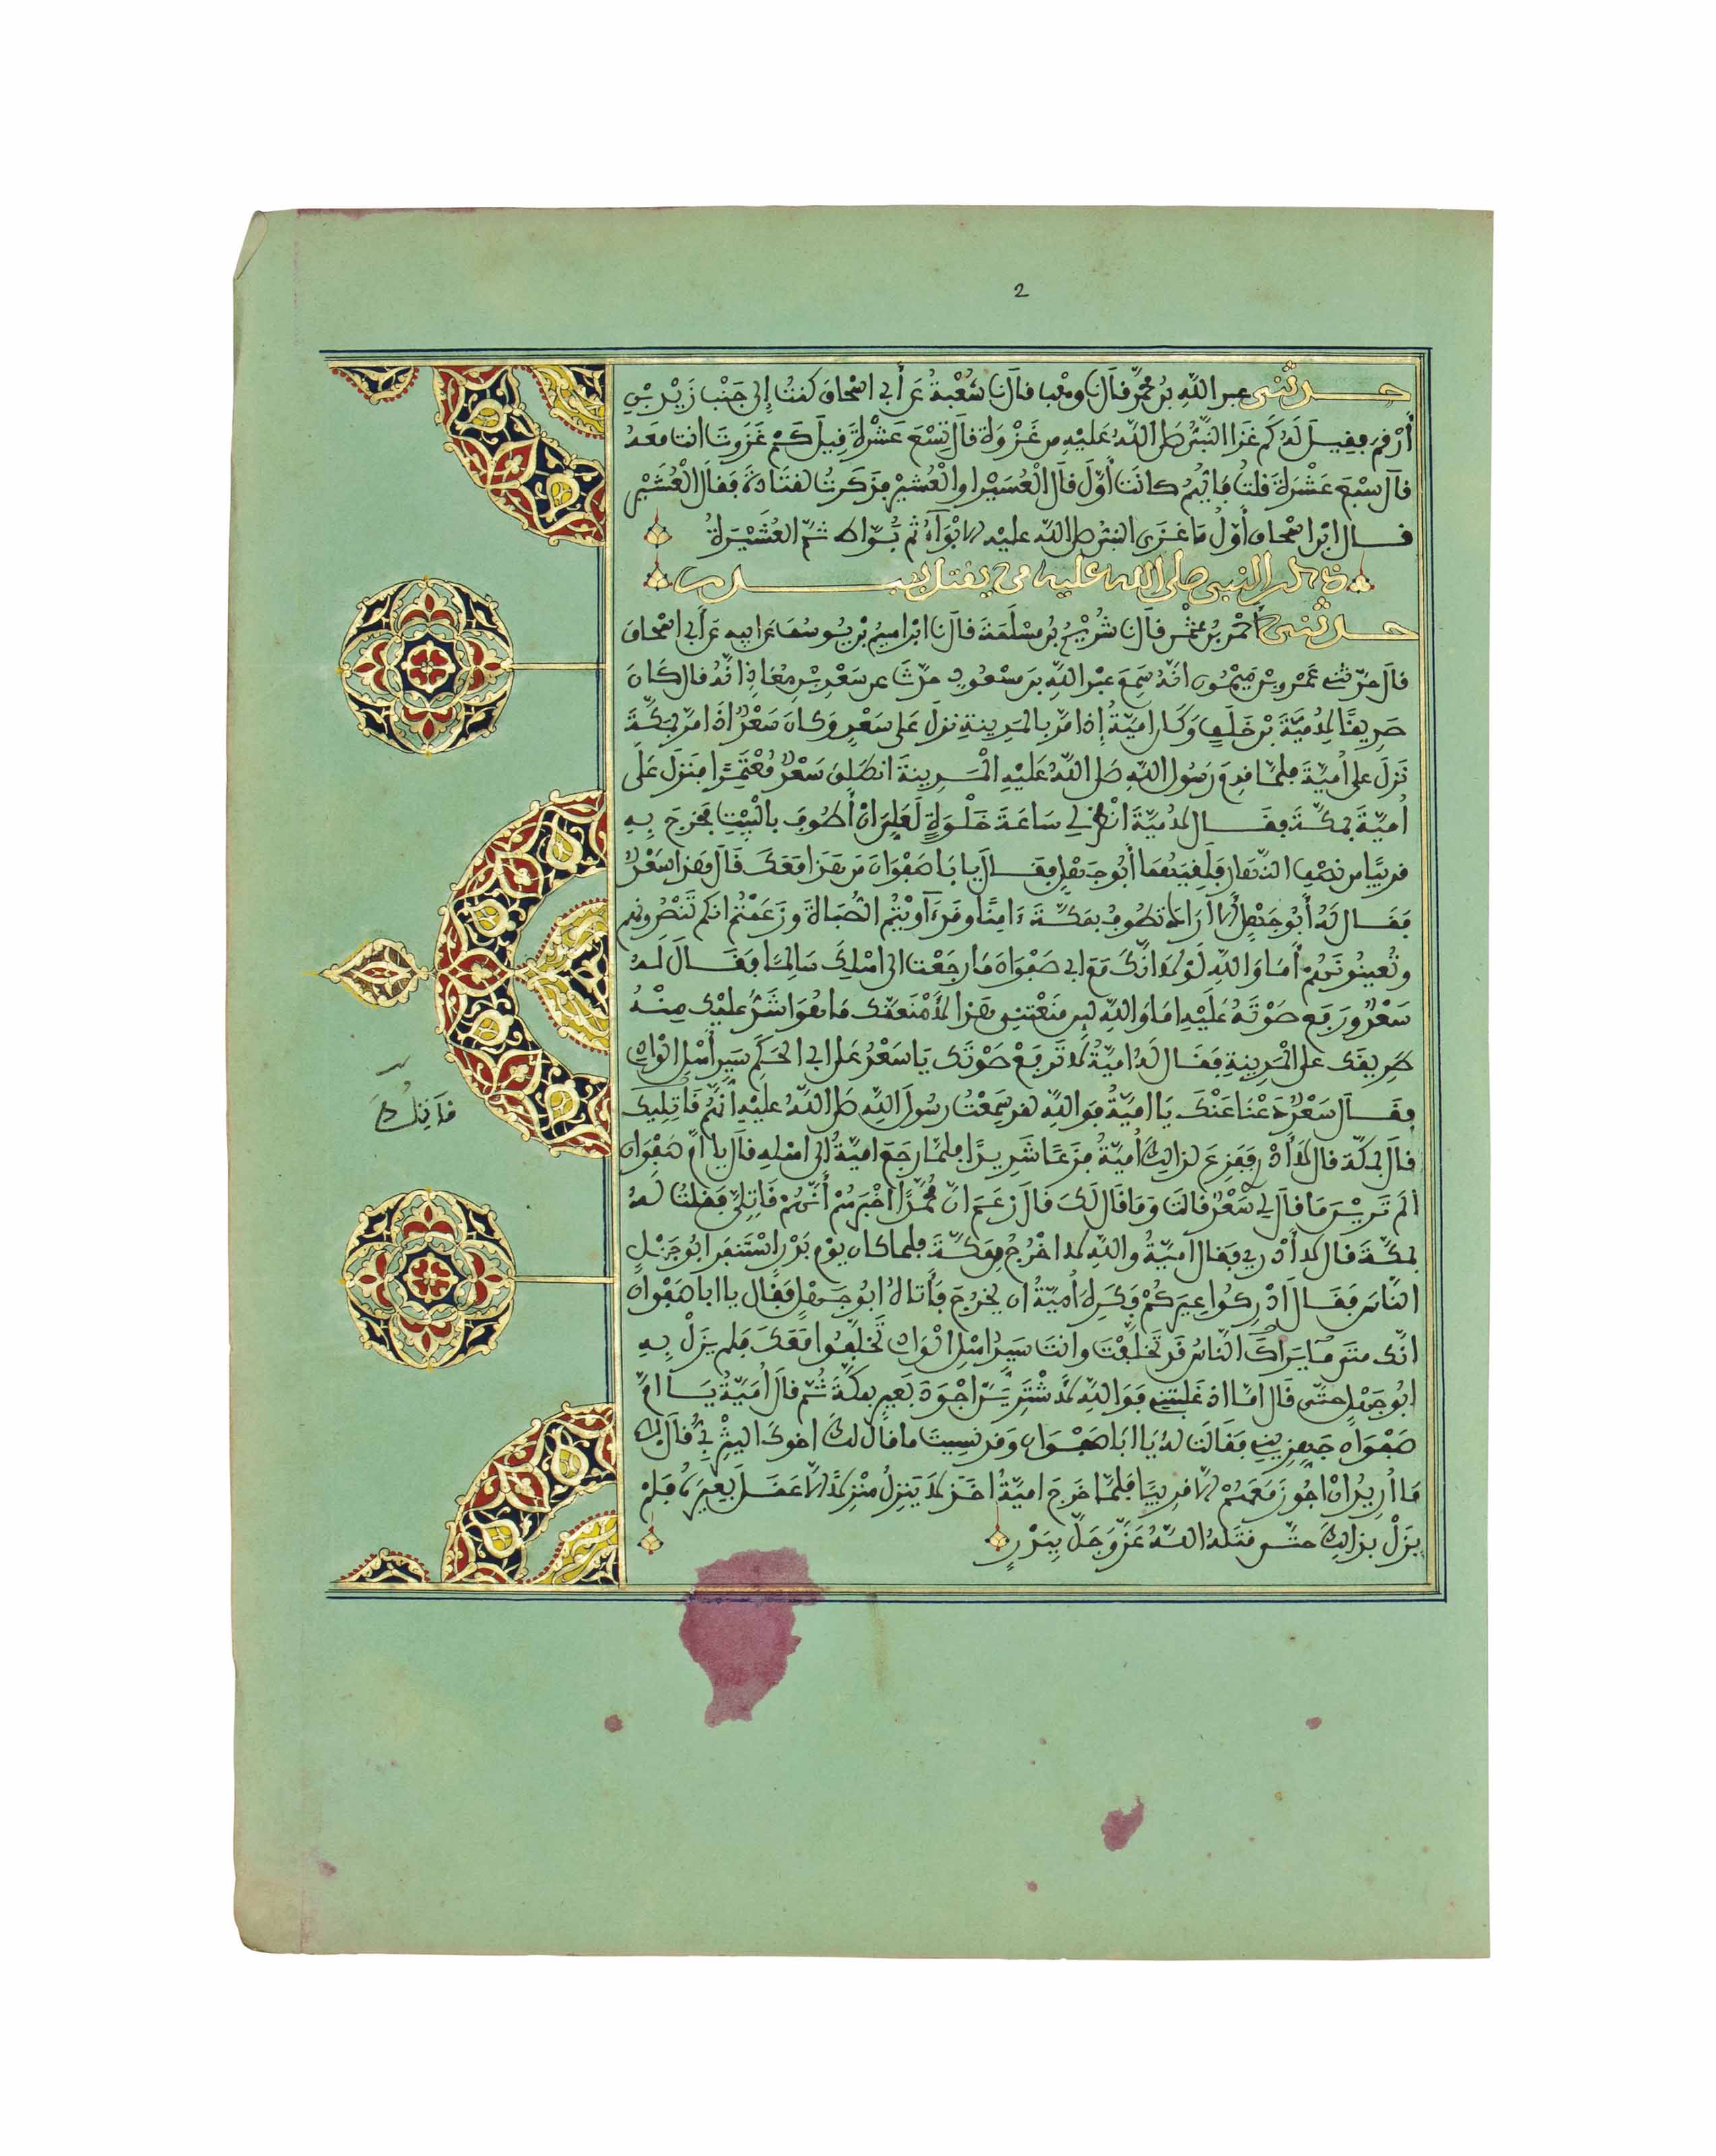 2
حدثني عبد الله بن محمد قال نا وهب قال نا شعبة عن أبي اسحاق كنت إلى جنب زيد بن
أرقم فقيل له كم غزا النبي صلى الله عليه من غزوة قال تسع عشرة قيل كم غزوت انت معه
قال سبع عشرة قلت فايهم كانت أول قال العسيرا والعشير فذكرت لقتادة فقال العشير
قال ابن اسحاق أول ما غزى النبي صلى الله عليه الابواء ثم بواط ثم العشيرة
ذكر النبي صلى الله عليه من يقتل ببدر
حدثني أحمد بن عثمن قال نا شريح بن مسلمة قال نا ابراهيم بن يوسف عن ابيه عن أبي اسحاق
قال حدثني عمرو بن ميمون انه سمع عبد الله بن مسعود حدث عن سعد بن معاذ انه قال كان
صديقا لامية بن خلف وكان امية إذا مر بالمدينة نزل على سعد وكان سعد اذا مر بمكة
نزل على أمية فلما قدم رسول الله صلى الله عليه المدينة انطلق سعد معتمرا فنزل على
أمية بمكة فقال لامية انظر لي ساعة خلوة لعلي ان أطوف بالبيت فخرج به
قريبا من نصف النهار فلقيهما أبو جهل فقال يا با صفوان من هذا معك قال هذا سعد
فقال له أبو جهل الا اراك تطوف بمكة ءامنا وقد ءاويتم الصباة وزعمتم انكم تنصرونهم
وتعينونهم أما والله لولا انك مع ابي صفوان ما رجعت الى اهلك سالما فقال له
سعد ورفع صوته عليه اما والله لين منعتني هذا لأمنعنك ما هو اشد عليك منه
طريقك على المدينة فقال له امية لا ترفع صوتك يا سعد على ابي الحكم سيد أهل الوادي
فقال سعد دعنا عنك يا امية فوالله لقد سمعت رسول الله صلى الله عليه انهم قاتليك
قانلوك
قال بمكة قال لا أدري ففزع لذالك أمية فزعا شديدا فلما رجع امية الى اهله قال يا ام صفوان
الم تري ما قال لي سعد قالت وما قال لك قال زعم ان محمدا اخبرهم أنهم قاتلي فقلت له
بمكة قال لا أدري فقال أمية والله لا اخرج من مكة فلما كان يوم بدر استنفر ابو جهل
الناس فقال ادركوا عيركم فكره أمية ان يخرج فأتاه ابو جهل فقال يا ابا صفوان
انك متى ما يراك الناس قد تخلفت وانت سيد اهل الوادي تخلفوا معك فلم يزل به
ابو جهل حتى قال اما اذ غلبتني فوالله لاشترين اجود بعير بمكة ثم قال أمية يا ام
صفوان جهزيني فقالت له يا ابا صفوان وقد نسيت ما قال لك اخوك اليثربي قال لا
ما اريد ان اجوز معهم الا قريبا فلما خرج امية اخذ لا ينزل منزلا الا عقل بعيره فلم
يزل بذالك حتى قتله الله عز وجل ببدر